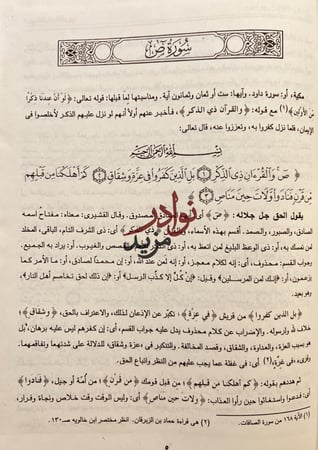 سُورَةُ صَ
مكية، أو: سورة داود، وآيها: ست أو ثمان وثمانون آية. ومناسبتها لِما قبلها: قوله تعالى: ﴿لَوْ أَنَّ عِندَنَا ذِكْرًا
مِّنَ الْأَوَّلِينَ﴾(١) مع قوله: ﴿والقرآن ذي الذكر﴾، فأخبر عنهم أولاً أنهم لو نزل عليهم الذكر لأخلصوا فى
الإيمان، فلما نزل كفروا به، وتعززوا عنه، قال تعالى:
بِسْمِ اللَّهِ الرَّحْمَٰنِ الرَّحِيمِ
﴿صَ وَالْقُرْءَانِ ذِى الذِّكْرِ ۝١ بَلِ الَّذِينَ كَفَرُوا فِى عِزَّةٍ وَشِقَاقٍ ۝٢ كَمْ أَهْلَكْنَا مِن قَبْلِهِم
مِّن قَرْنٍ فَنَادَوا وَّلَاتَ حِينَ مَنَاصٍ ۝٣﴾
يقول الحق جل جلاله: ﴿ص﴾ أى: أيها الصادق المصدوق. وقال القشيرى: معناه: مفتاح اسمه
الصادق، والصبور، والصمد. أقسم بهذه الأسماء، وبالقرآن ﴿ذى الذكر﴾ أى: ذى الشرف التام، الباقى، المخلد
لمن تمسك به، أو: ذى الوعظ البليغ لمن اتعظ به، أو: ذى الذكر للأمم والقصص والغيوب. أو: يراد به الجميع.
وجواب القسم: محذوف، أى: إنه لكلام معجز، أو: إنه لمن عند الله، أو: إن محمداً لصادق، أو: ما الأمر كما
يزعمون، أو: ﴿إنك لمن المرسلين﴾ وقيل: ﴿إِنْ كُلٌّ إلا كذَّب الرسل﴾ أو: ﴿إن ذلك لحق تخاصم أهل النار﴾،
وهو بعيد.
﴿بل الذين كفروا﴾ من قريش ﴿فى عِزةٍ﴾: تكبُّر عن الإذعان لذلك، والاعتراف بالحق، ﴿وشقاقٍ﴾:
خلاف لله ولرسوله. والإضراب عن كلام محذوف يدل عليه جواب القسم، أى: إن كفرهم ليس عليه برهان، بل
هو بسبب العزة، والعداوة، والشقاق، وقصد المخالفة. والتنكير فى «عزة وشقاق» للدلالة على شدتهما وتفاقمهما.
وقرىء ﴿فى غِرَّةٍ﴾(٢) أى: فى غفلة عما يجب عليهم من النظر واتباع الحق.
ثم هددهم بقوله: ﴿كم أهلكنا من قبلهم﴾ من قبل قومك ﴿من قَرْنٍ﴾: من أُمة أو جيل، ﴿فنادَوا﴾
أى: فدعوا واستغاثوا حين رأوا العذاب: ﴿ولات حين مناصٍ﴾ أى: وليس الوقت وقت خلاص ونجاة وفرار،
(١) الآية ١٦٨ من سورة الصافات. (٢) هى قراءة حماد بن الزبرقان. انظر مختصر ابن خالويه ص١٣٠.
٥
نوادر
مزيد